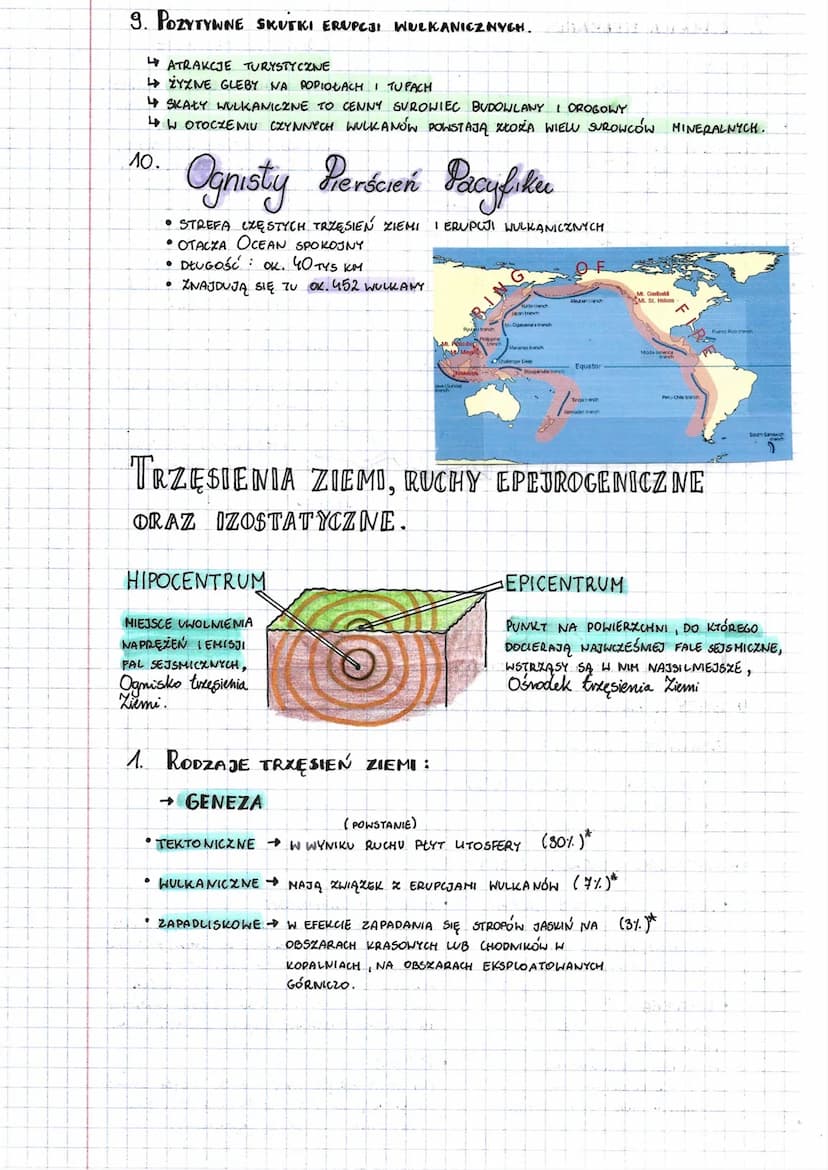 9. POZYTYWNE SKUTKI ERUPCJI WULKANICZNYCH.
↳ ATRAKCJE TURYSTYCZNE
↳ ŻYZNE GLEBY NA POPIOŁACH I TUFACH
↳ SKAŁY WULKANICZNE TO CENNY SUROWIEC BUDOWLANY I DROGOWY
↳ W OTOCZENIU CZYNNYCH WULKANÓW POWSTAJĄ ZŁOŻA WIELU SUROWCÓW MINERALNYCH.
10. Ognisty Pierścień Pacyfiku
• STREFA CZĘSTYCH TRZĘSIEŃ ZIEMI I ERUPCJI WULKANICZNYCH
• OTACZA OCEAN SPOKOJNY
• DŁUGOŚĆ: OK. 40 TYS KM
• ZNAJDUJĄ SIĘ TU OK. 452 WULKANY
RING OF FIRE
Mt. Garibaldi
Mt. St. Helens
Aleutian trench
Kurile trench
Japan trench
Izu Ogasawara trench
Ryukyu trench
Philippine trench
Marianas trench
Challenger Deep
Bougainville trench
Equator
Tonga trench
Kermadec trench
Middle America trench
Puerto Rico trench
Peru-Chile trench
South Sandwich trench
TRZĘSIENIA ZIEMI, RUCHY EPEJROGENICZNE
ORAZ IZOSTATYCZNE.
HIPOCENTRUM
MIEJSCE UWOLNIENIA
NAPRĘŻEŃ I EMISJI
FAL SEJSMICZNYCH,
Ognisko trzęsienia
Ziemi.
EPICENTRUM
PUNKT NA POWIERZCHNI, DO KTÓREGO
DOCIERAJĄ NAJWCZEŚNIEJ FALE SEJSMICZNE,
WSTRZĄSY SĄ W NIM NAJSILNIEJSZE,
Ośrodek trzęsienia Ziemi
1. RODZAJE TRZĘSIEŃ ZIEMI:
→ GENEZA
(POWSTANIE)
• TEKTONICZNE → W WYNIKU RUCHU PŁYT LITOSFERY (90%)*
• WULKANICZNE → MAJĄ ZWIĄZEK Z ERUPCJAMI WULKANÓW (7%)*
• ZAPADLISKOWE → W EFEKCIE ZAPADANIA SIĘ STROPÓW JASKIŃ NA (3%)*
OBSZARACH KRASOWYCH LUB CHODNIKÓW W
KOPALNIACH, NA OBSZARACH EKSPLOATOWANYCH
GÓRNICZO.